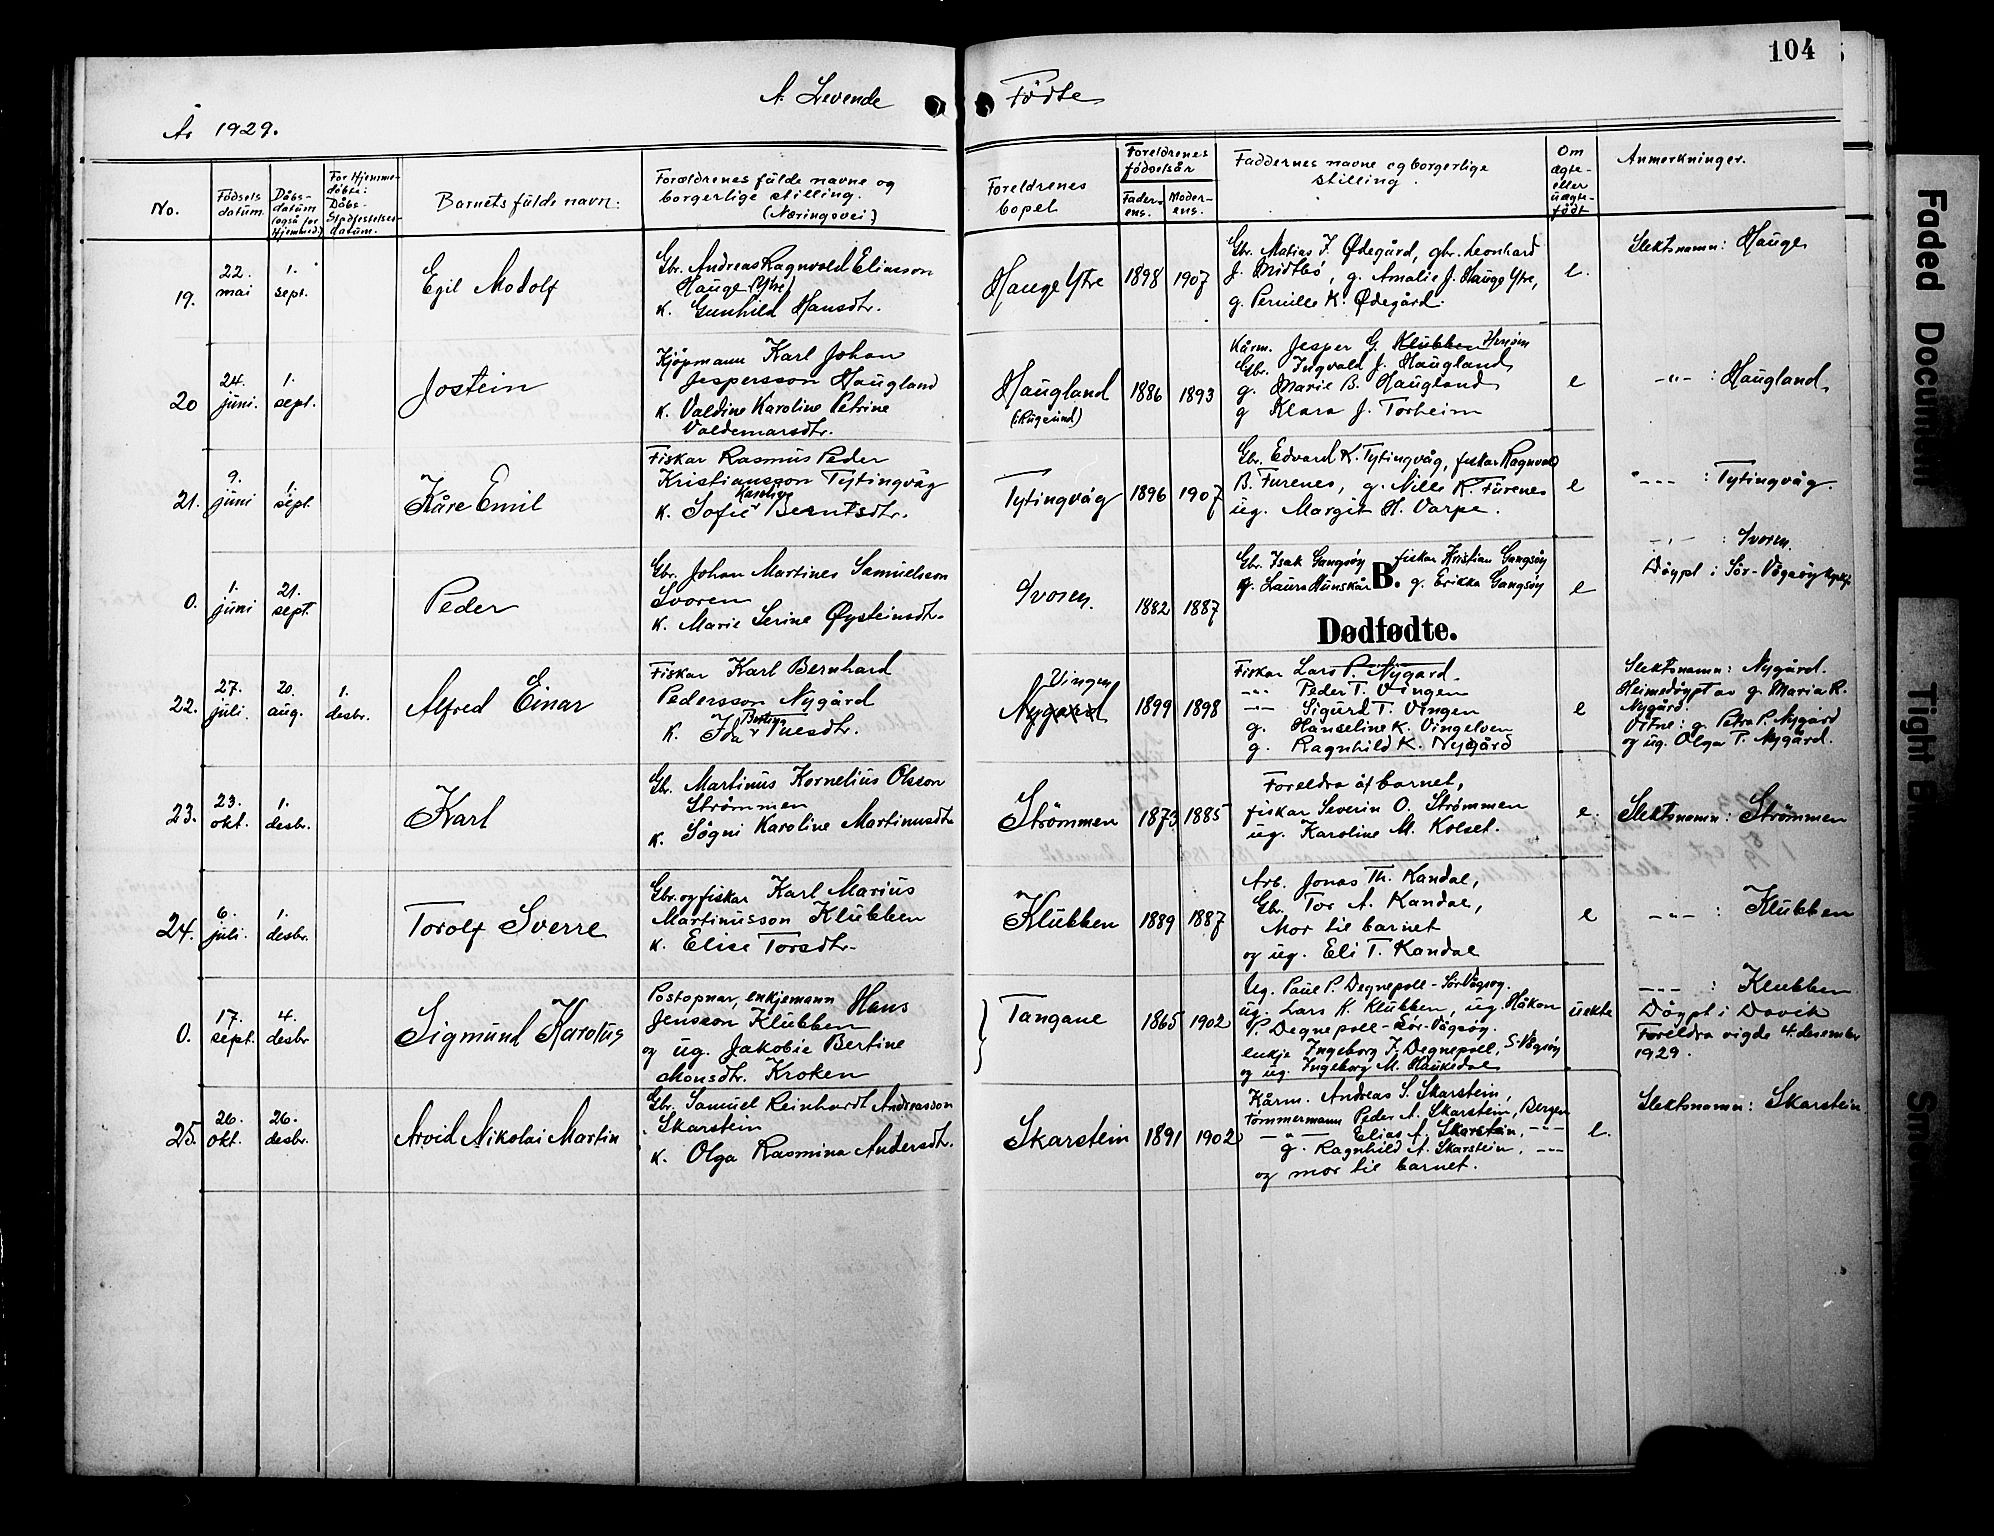 104
A. Levende Födte
År 1929.
No.
Födsels datum.
Dåbs-datum (også for Hjemmed.)
For Hjemme-döbte: Dåbs-Stadfestelses-datum.
Barnets fulde navn:
Forældrenes fulde navne og borgerlige stilling. (Næringsvei)
Foreldrenes bopel
Foreldrenes födselsår
Faderens.
Moderens.
Faddernes navne og borgerlige stilling.
Om ægte- eller uægte-födt
Anmerkninger.
19.
22. mai
1. sept.
Egil Modolf
Gbr. Andreas Ragnvald Eliasson
Hauge (Ytre)
K. Gunhild Hansdtr.
Hauge Ytre
1898
1907
Gbr. Matias J. Ødegård, gbr. Leonhard
J. Midtbö, g. Amalie J. Hauge Ytre,
g. Pernille K. Ødegård.
e.
Slektsnamn: Hauge
20
24. juni.
1. sept.
Jostein
Kjöpmann Karl Johan
Jespersson Haugland
K. Valdine Karoline Petrine
Valdemarsdtr.
Haugland
(i Rugsund)
1886
1893
Kårm. Jesper G. Klubben
Gbr. Ingvald J. Haugland
g. Marie B. Haugland
g Klara J. Torheim
e
-"- : Haugland
21.
9. juni
1. sept.
Kåre Emil
Fiskar Rasmus Peder
Kristiansson Tytingvåg
K. Sofie Karoline Berntsdtr.
Tytingvåg
1896
1907
Gbr. Edvard K. Tytingvåg, fiskar Ragnvald
B. Furenes, g. Nille K. Furenes
ug. Margit H. Varpe.
e
-"- : Tytingvåg.
0.
1. juni
21. sept.
Peder
Gbr. Johan Martines Samuelsson
Svoren
K. Marie Serine Øysteinsdtr.
Svoren
1882
1887
Gbr. Isak Gangsöy fiskar Kristian Gangsöy
g. Laura Hunskår g. Erikka Gangsöy
B.
Dødfødte.
e
-"- : Svoren
Döypt i Sör-Vågsöy kyrkje
22.
27. juli.
20. aug.
1. desbr.
Alfred Einar
Fiskar Karl Bernhard
Pedersson Nygård
K. Ida Bertina Tuesdtr.
Vingen
Nygård
1899
1898
Fiskar Lars P. Nygård.
-"- Peder T. Vingen
-"- Sigurd T. Vingen
g. Hanseline K. Vingelven
g. Ragnhild K. Nygård
e
Slektsnamn: Nygård.
Heimedöypt av g. Maria R.
Nygård.
Vitne: g. Petra P. Nygård
og ug. Olga P. Nygård.
23.
23. okt.
1. desbr.
Karl
Gbr. Martinus Kornelius Olsson
Strömmen
K. Sögni Karoline Martinusdtr
Strömmen
1873
1885
Foreldra åt barnet,
fiskar Severin O. Strömmen
ug. Karoline M. Kolset.
e.
Slektsnamn: Strömmen
24.
6. juli.
1. desbr.
Torolf Sverre
Gbr. og fiskar Karl Marius
Martinusson Klubben
K. Elise Torsdtr.
Klubben
1889
1887
Arb. Jonas Th. Kandal,
Gbr. Tor A. Kandal,
Mor til barnet
og ug. Eli T. Kandal
e
-"- : Klubben
0.
17. sept.
4. desbr
Sigmund Karolus
Postopnar, enkjemann Hans
Jensson Klubben
og ug. Jakobie Bertine
Monsdtr. Kroken
Tangane
1865
1902
Ug. Paul P. Degnepoll - Sör-Vågsöy.
ug. Lars K. Klubben, ug. Håkon
P. Degnepoll - Sör-Vågsöy.
enkje Ingeborg J. Degnepoll, S-Vågsöy
og ug. Ingeborg M. Haukedal
uekte
-"- : Klubben
Döypt i Davik
Foreldra vigde 4. desember
1929.
25.
26. okt.
26. desbr.
Arvid Nikolai Martin
Gbr. Samuel Reinhardt Andreasson
Skarstein
K. Olga Rasmina Andersdtr.
Skarstein
1891
1902
Kårm. Andreas S. Skarstein,
Tömmermann Peder A. Skarstein, Bergen
-"- Elias A. Skarstein, -"-
g. Ragnhild A. Skarstein, -"-
og mor til barnet.
e.
Slektsnamn: Skarstein
Faded Document
Tight Bi
S